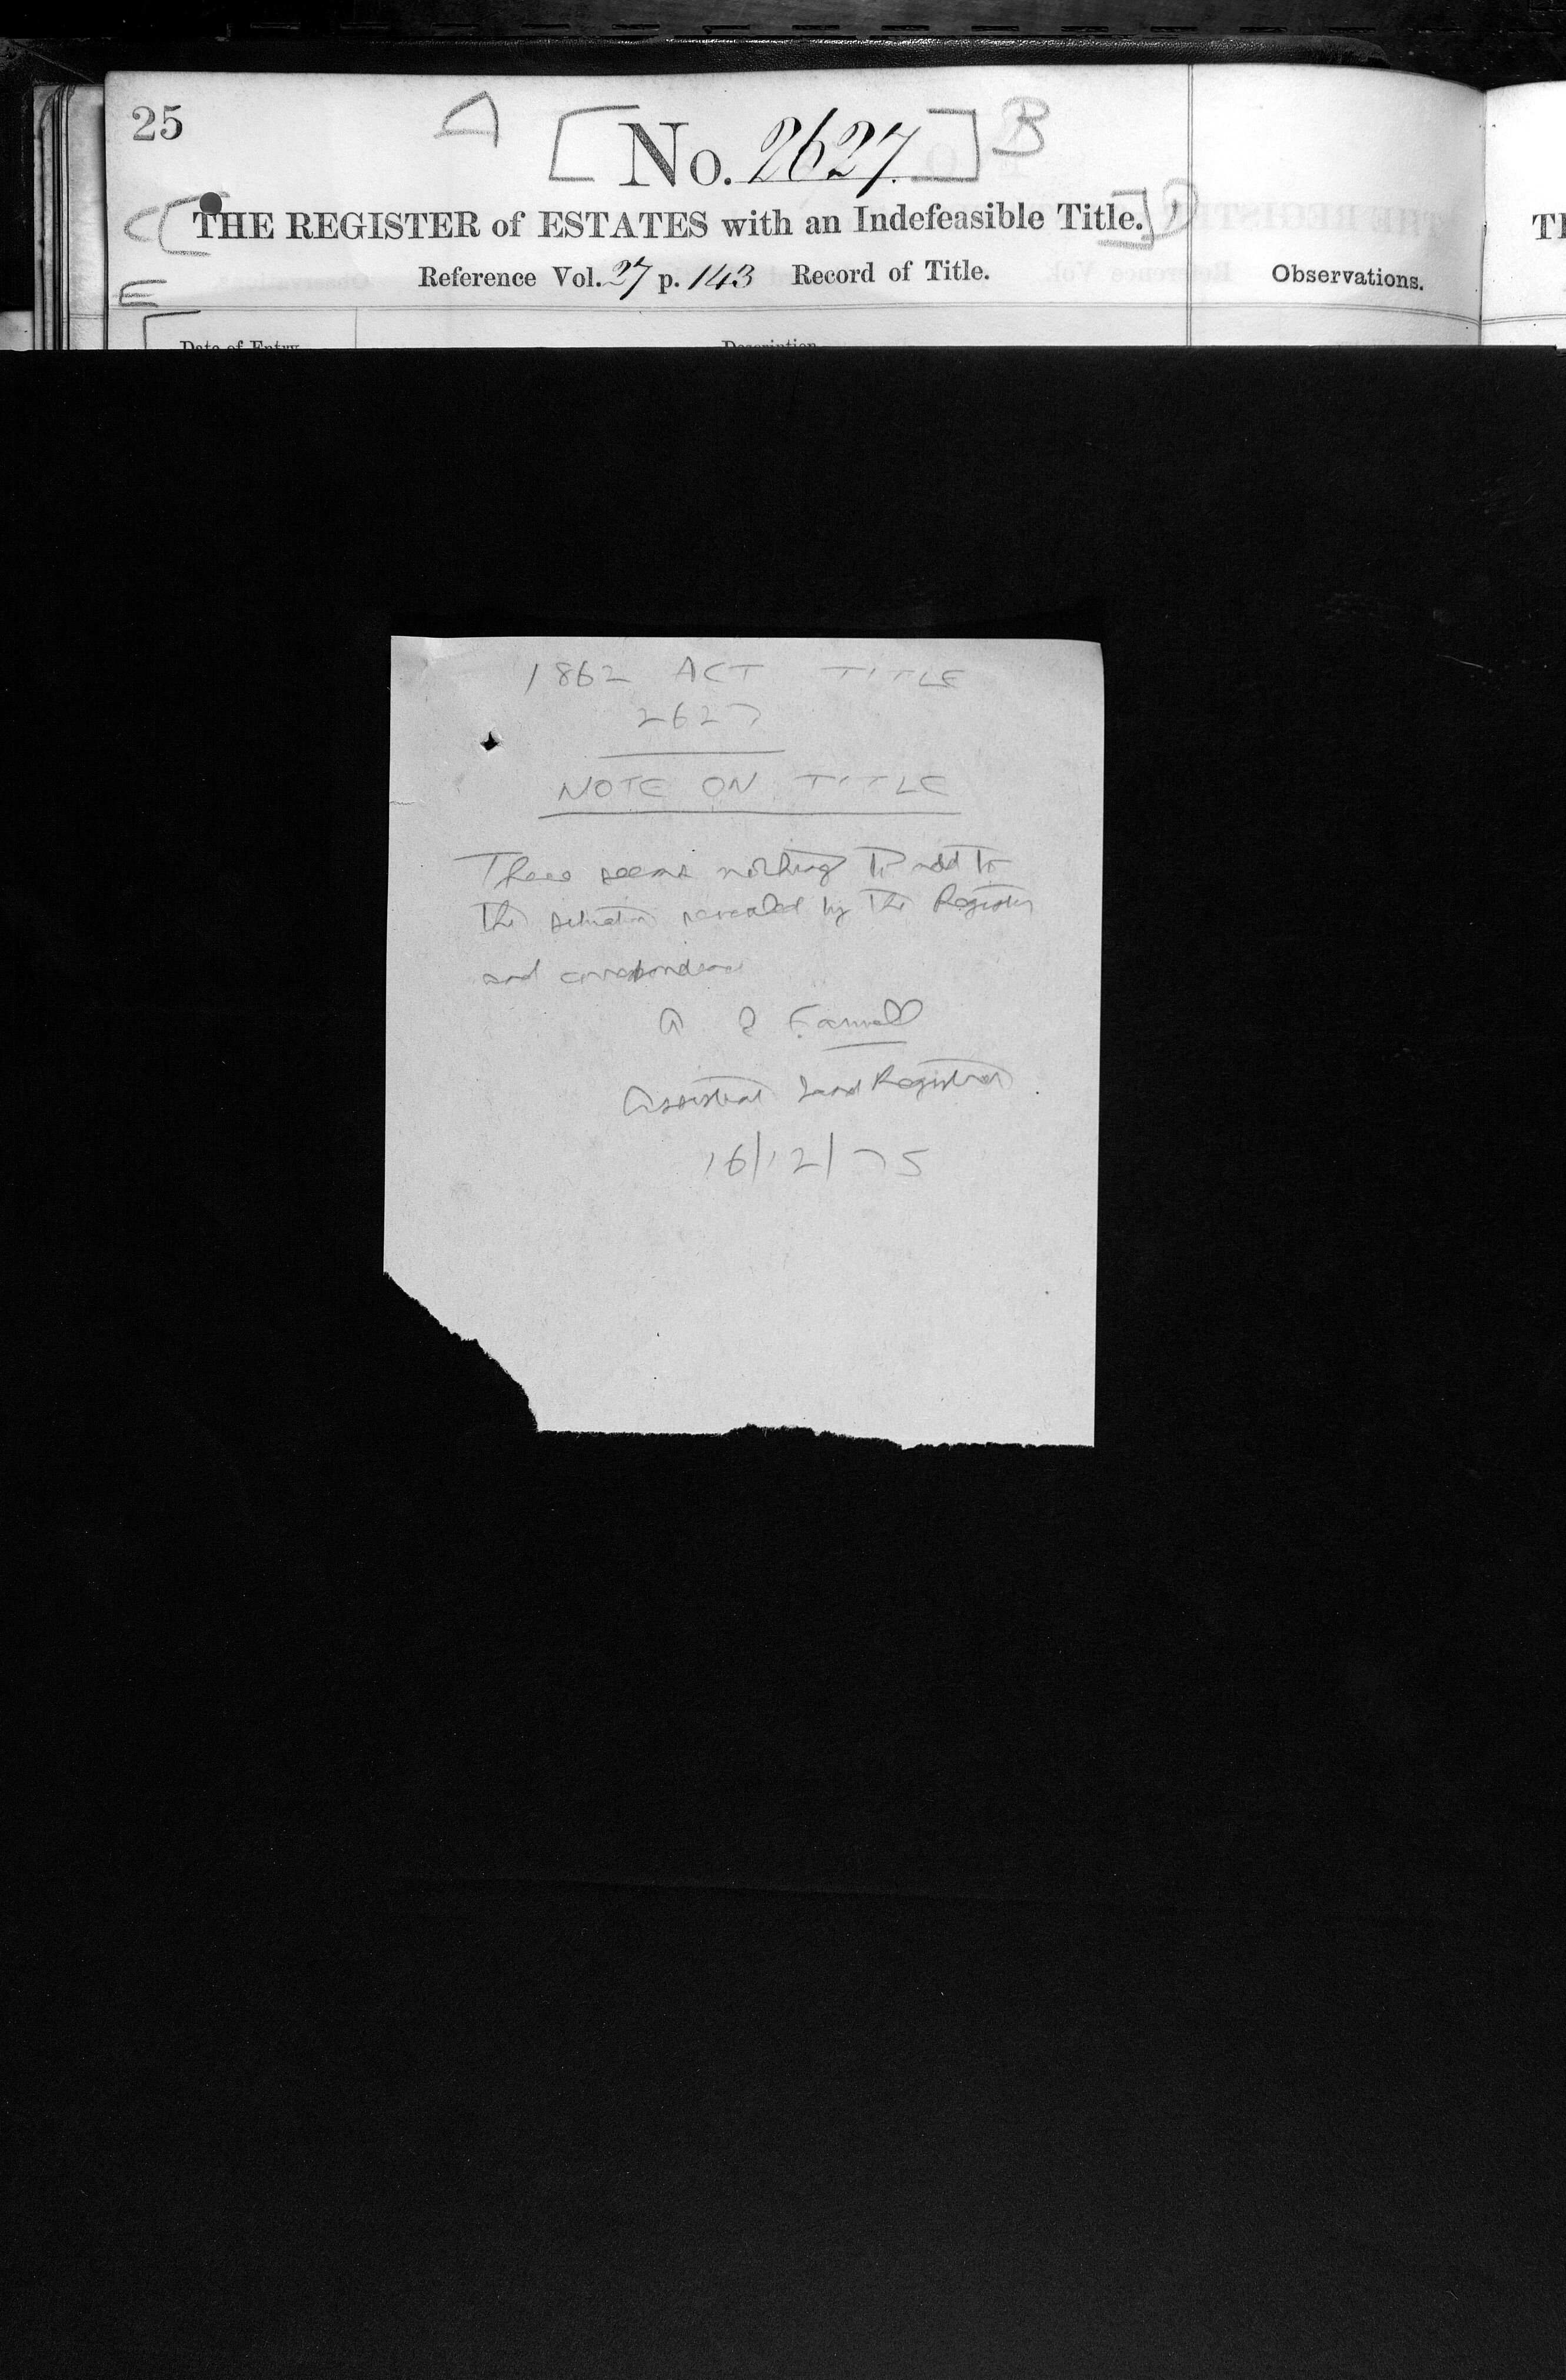 25
A
[No. 2627.] B
C [THE REGISTER of ESTATES with an Indefeasible Title.]
Reference Vol. 27 p. 143 Record of Title.
Observations.
E
Date of Entry
Description
1862 ACT TITLE
2627
NOTE ON TITLE
There seems nothing to add to
the situation revealed by the Register
and correspondence
Farnall
Assistant Land Registrar
16/12/75